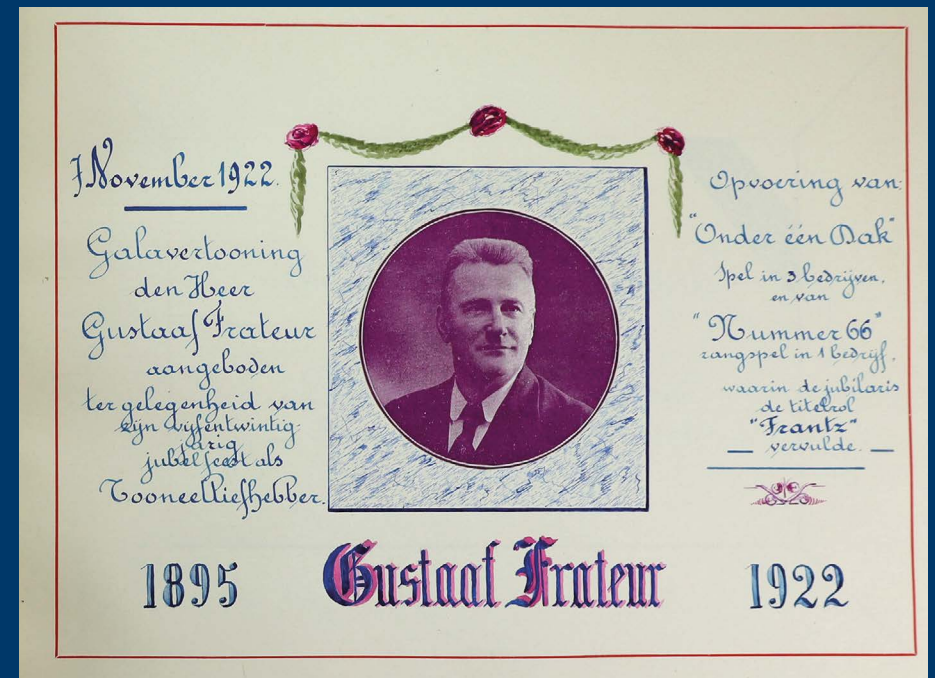 7 November 1922.
Galavertooning
den Heer
Gustaaf Frateur
aangeboden
ter gelegenheid van
zijn vijfentwintig-
jarig
jubelfeest als
Tooneelliefhebber.
Opvoering van:
"Onder één Dak"
Spel in 3 bedrijven,
en van
"Nummer 66"
zangspel in 1 bedrijf,
waarin de jubilaris
de titelrol
"Frantz"
vervulde.
1895
Gustaaf Frateur
1922